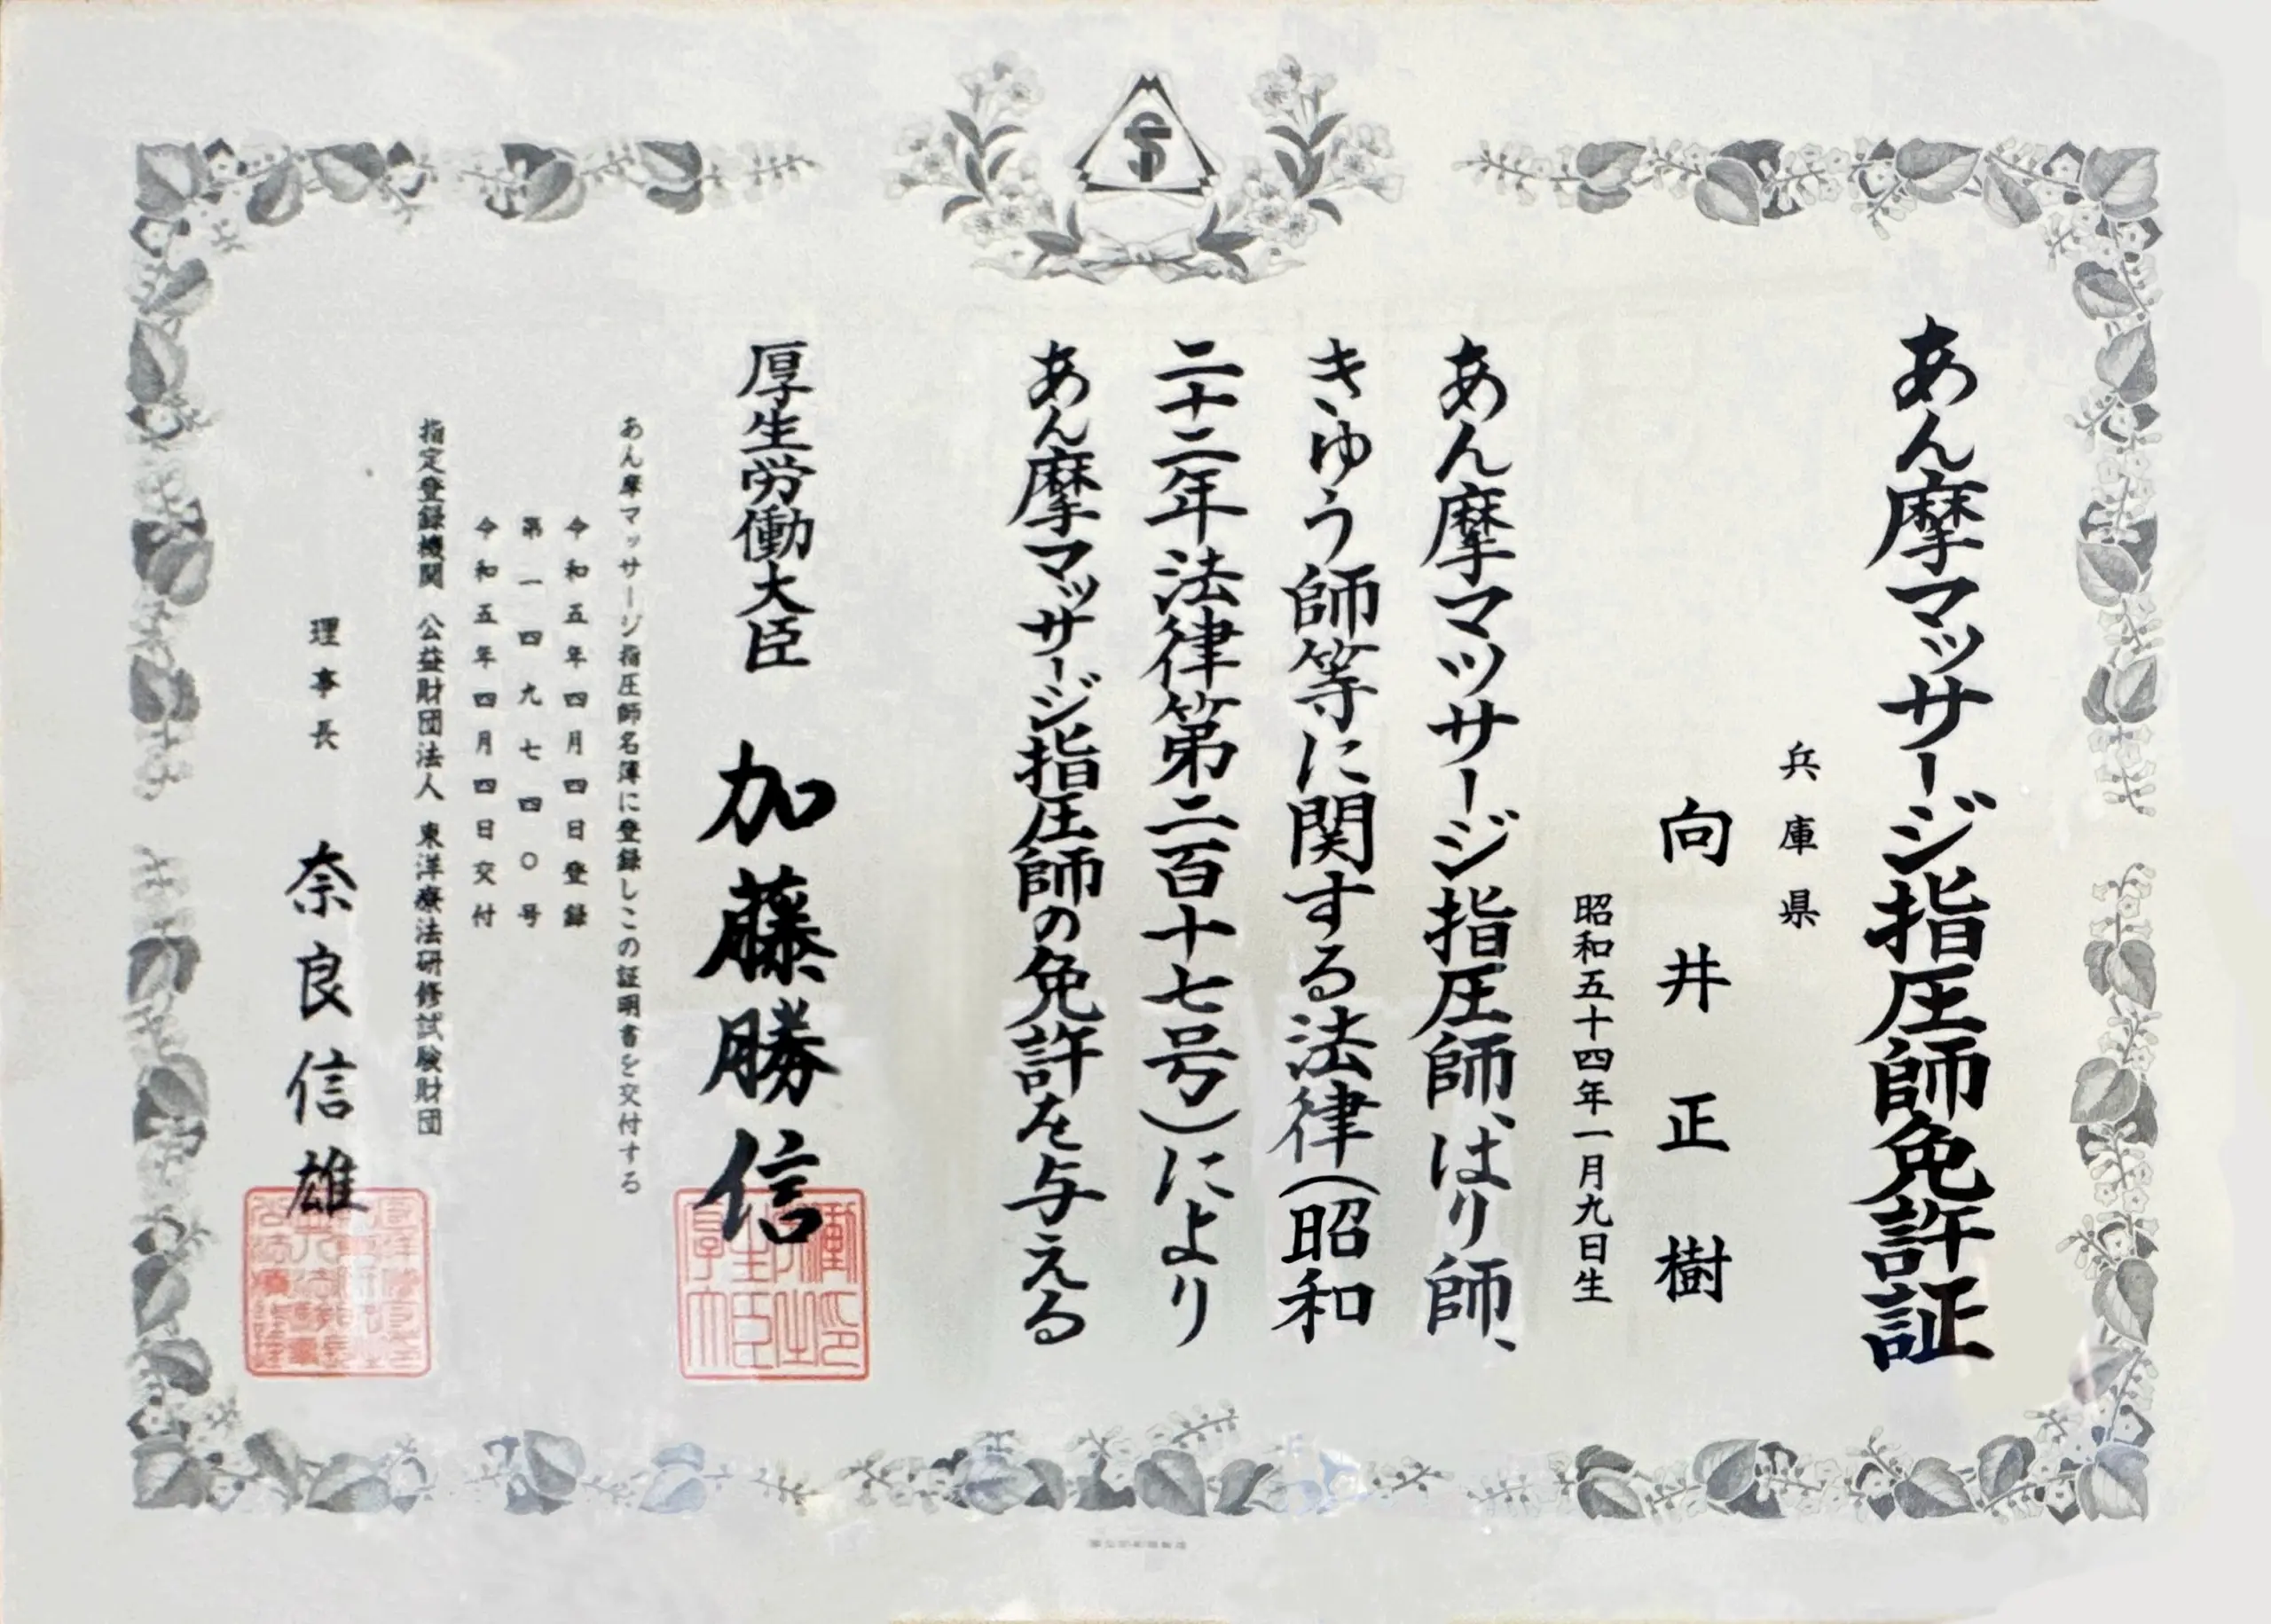 あん摩マッサージ指圧師免許証
兵庫県
向井正樹
昭和五十四年一月九日生
あん摩マツサージ指圧師、はり師、
きゆう師等に関する法律(昭和
二十二年法律第二百十七号)により
あん摩マッサージ指圧師の免許を与える
厚生労働大臣 加藤勝信
あん摩マッサージ指圧師名簿に登録しこの証明書を交付する
令和五年四月四日登録
第一四九七四〇号
令和五年四月四日交付
指定登録機関 公益財団法人 東洋療法研修試験財団
理事長 奈良信雄